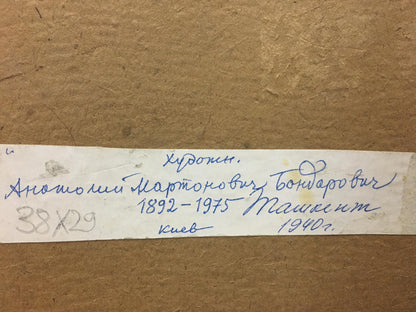 Художн.
Анатолий Мартонович Бондарович
1892-1975 Ташкент
38X29
Киев 1940г.